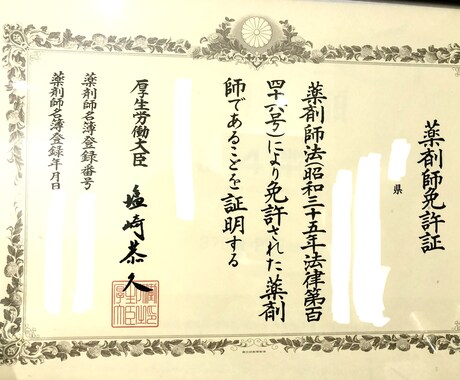 薬剤師免許証
県
薬剤師法(昭和三十五年法律第百
四十六号)により免許された薬剤
師であることを証明する
厚生労働大臣 塩崎恭久
薬剤師名簿登録番号
薬剤師名簿登録年月日